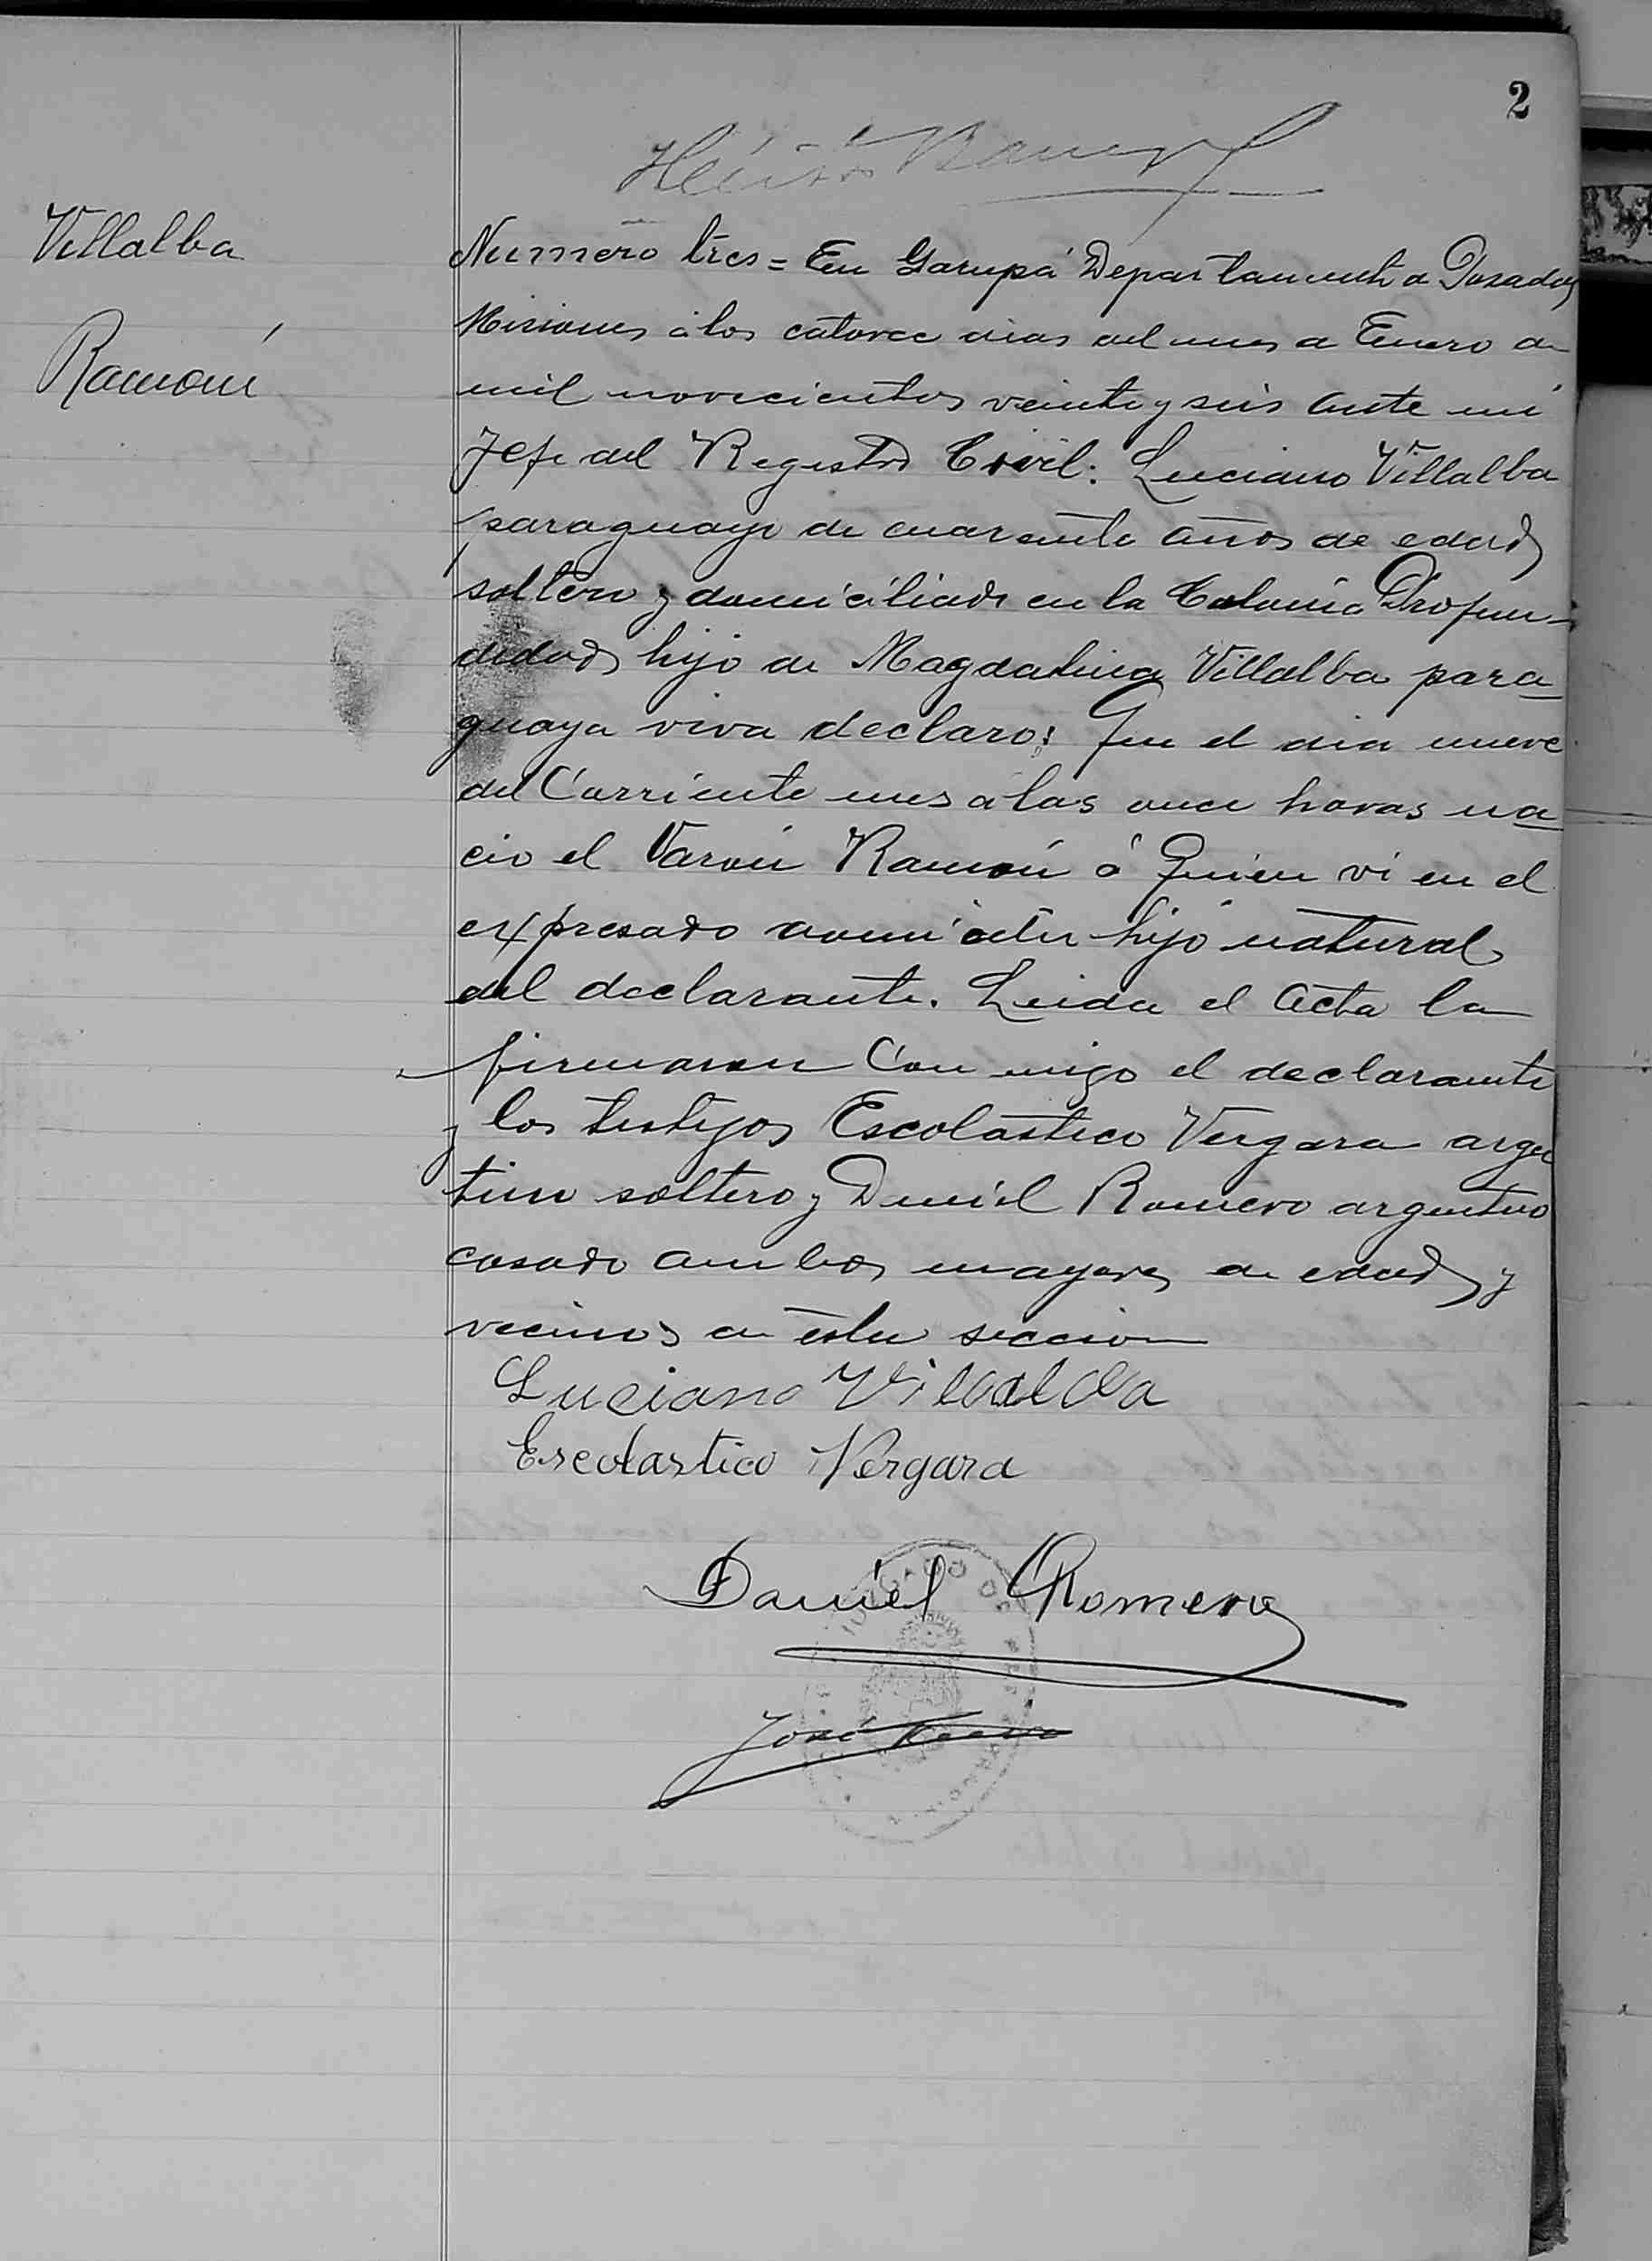 2
Villalba
Ramón
Numero tres = En Garupá Departamento de Posadas
Misiones á los catorce dias del mes de Enero de
mil novecientos veinte y seis ante mi
Jefe del Registro Civil: Luciano Villalba
paraguayo de cuarenta años de edad
soltero y domiciliado en la Colonia Profun-
didad hijo de Magdalena Villalba para
guaya viva declaro: Que el dia nueve
del Corriente mes á las once horas na
cio el Varón Ramón á Quien vi en el
expresado domicilio hijo natural
del declarante. Leida el Acta la
firmaron Con migo el declarante
y los testigos Escolastico Vergara argen
tino soltero y Daniel Romero argentino
casado ambos mayores de edad y
vecinos de esta seccion
Luciano Villalba
Escolastico Vergara
Daniel Romero
José